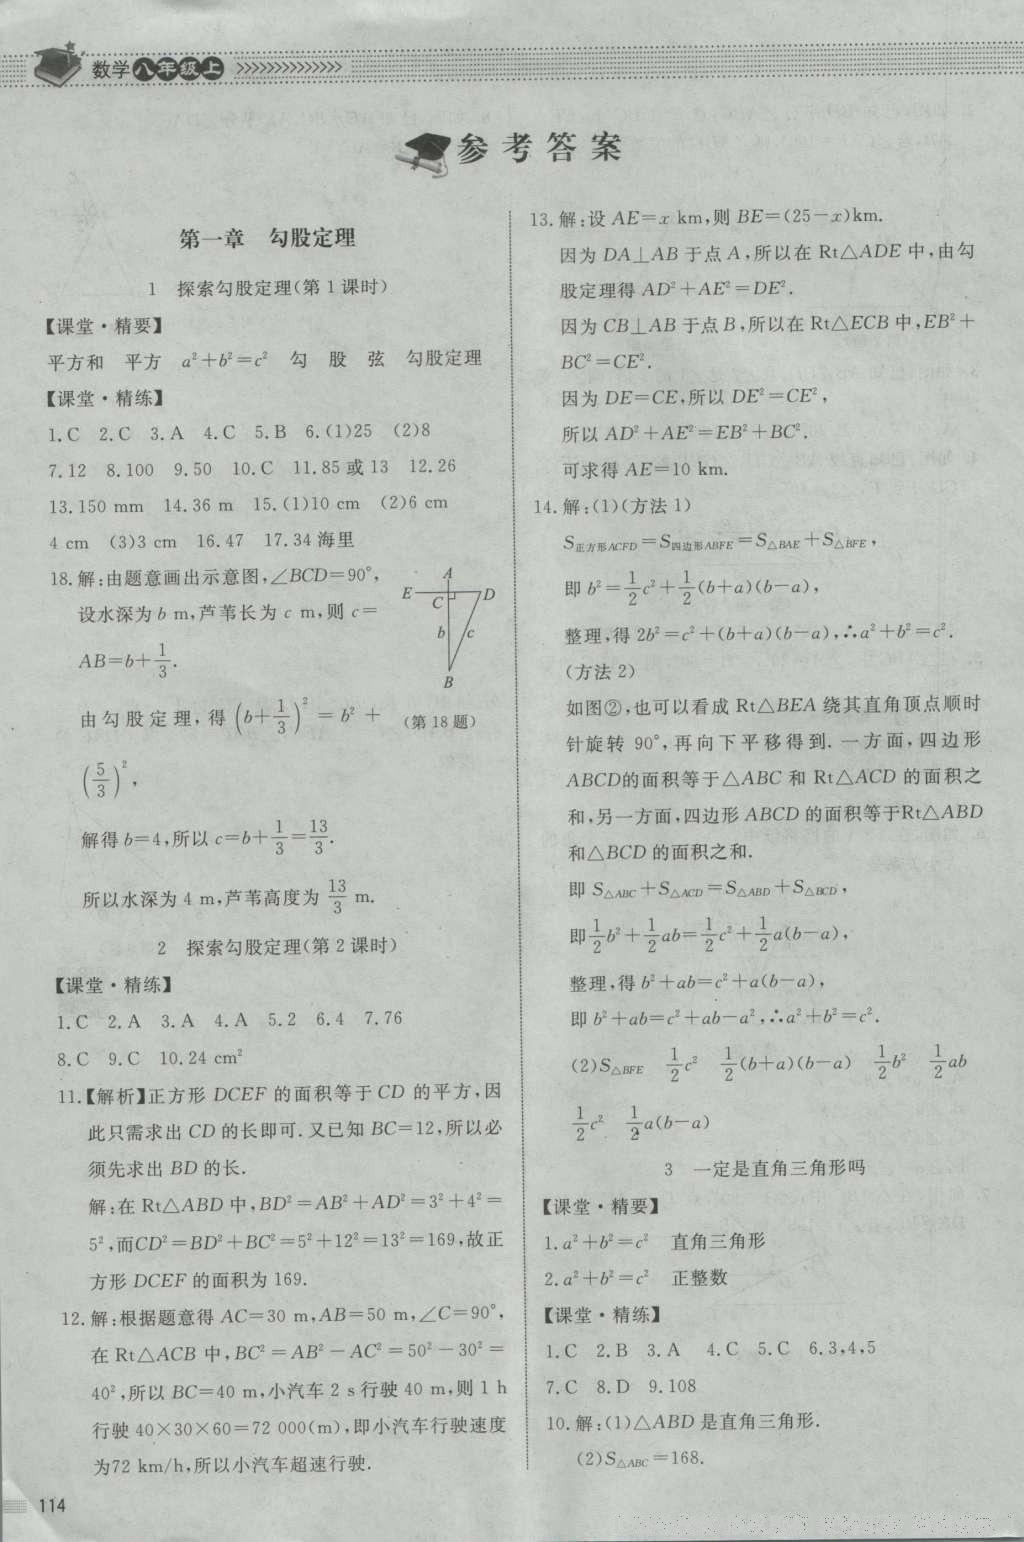 数学八年级上
参考答案
第一章 勾股定理
1 探索勾股定理(第1课时)
【课堂·精要】
平方和 平方 a²+b²=c² 勾 股 弦 勾股定理
【课堂·精练】
1.C 2.C 3.A 4.C 5.B 6.(1)25 (2)8
7.12 8.100 9.50 10.C 11.85或13 12.26
13.150 mm 14.36 m 15.(1)10 cm (2)6 cm
4 cm (3)3 cm 16.47 17.34海里
18.解:由题意画出示意图,∠BCD=90°,
设水深为b m,芦苇长为c m,则c=
AB=b+1/3.
由勾股定理,得(b+1/3)²=b²+
(5/3)²,
A
E
C
D
b
c
B
(第18题)
解得b=4,所以c=b+1/3=13/3.
所以水深为4 m,芦苇高度为13/3 m.
2 探索勾股定理(第2课时)
【课堂·精练】
1.C 2.A 3.A 4.A 5.2 6.4 7.76
8.C 9.C 10.24 cm²
11.【解析】正方形DCEF的面积等于CD的平方,因
此只需求出CD的长即可.又已知BC=12,所以必
须先求出BD的长.
解:在Rt△ABD中,BD²=AB²+AD²=3²+4²=
5²,而CD²=BD²+BC²=5²+12²=13²=169,故正
方形DCEF的面积为169.
12.解:根据题意得AC=30 m,AB=50 m,∠C=90°,
在Rt△ACB中,BC²=AB²-AC²=50²-30²=
40²,所以BC=40 m,小汽车2 s行驶40 m,则1 h
行驶40×30×60=72 000(m),即小汽车行驶速度
为72 km/h,所以小汽车超速行驶.
114
13.解:设AE=x km,则BE=(25-x)km.
因为DA⊥AB于点A,所以在Rt△ADE中,由勾
股定理得AD²+AE²=DE².
因为CB⊥AB于点B,所以在Rt△ECB中,EB²+
BC²=CE².
因为DE=CE,所以DE²=CE²,
所以AD²+AE²=EB²+BC².
可求得AE=10 km.
14.解:(1)(方法1)
S正方形ACFD=S四边形ABFE=S△BAE+S△BFE,
即b²=1/2c²+1/2(b+a)(b-a),
整理,得2b²=c²+(b+a)(b-a),∴a²+b²=c².
(方法2)
如图②,也可以看成Rt△BEA绕其直角顶点顺时
针旋转90°,再向下平移得到.一方面,四边形
ABCD的面积等于△ABC和Rt△ACD的面积之
和,另一方面,四边形ABCD的面积等于Rt△ABD
和△BCD的面积之和.
即S△ABC+S△ACD=S△ABD+S△BCD,
即1/2b²+1/2ab=1/2c²+1/2a(b-a),
整理,得b²+ab=c²+a(b-a),
即b²+ab=c²+ab-a²,∴a²+b²=c².
(2)S△BFE 1/2c² 1/2(b+a)(b-a) 1/2b² 1/2ab
1/2c² 1/2a(b-a)
3 一定是直角三角形吗
【课堂·精要】
1.a²+b²=c² 直角三角形
2.a²+b²=c² 正整数
【课堂·精练】
1.C 2.B 3.A 4.C 5.C 6.3,4,5
7.C 8.D 9.108
10.解:(1)△ABD是直角三角形.
(2)S△ABC=168.